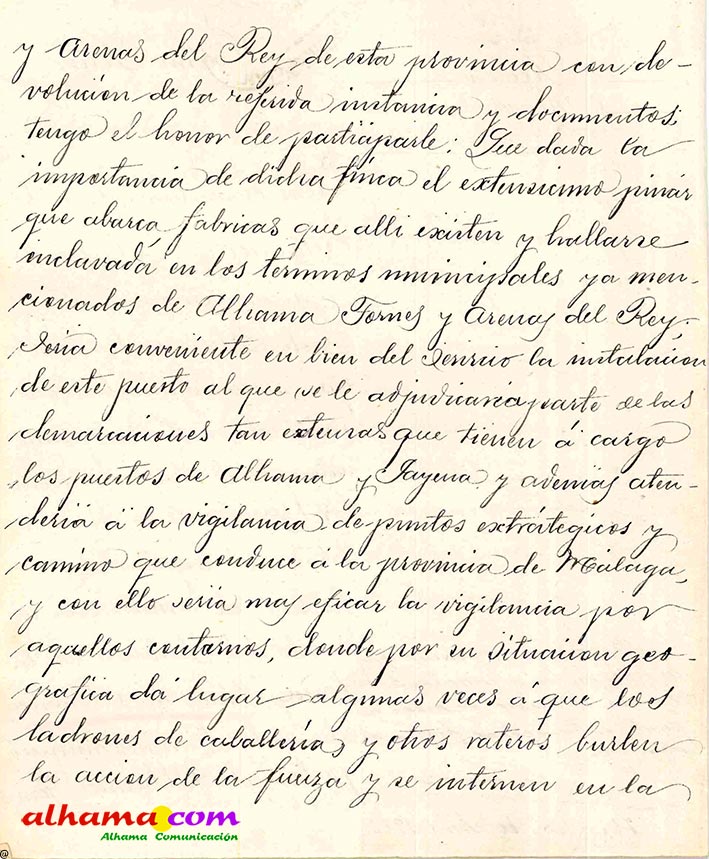 y Arenas del Rey, de esta provincia con de-
volución de la referida instancia y documentos;
tengo el honor de participarle: Que dada la
importancia de dicha finca el extensicimo pinar
que abarca, fabricas que alli existen y hallarse
inclavada en los terminos municipales ya men-
cionados de Alhama Fornes y Arenas del Rey.
Seria conveniente en bien del Servicio la instalación
de este puesto al que se le adjudicaria parte de las
demarcaciones tan extensas que tienen á cargo
los puestos de Alhama y Jayena y además aten-
deriä ä la vigilancia de puntos extrátegicos y
camino que conduce á la provincia de Málaga,
y con ello seria mas eficaz la vigilancia por
aquellos contornos, donde por su situacion geo-
grafica dá lugar algunas veces á que los
ladrones de caballerías y otros rateros burlen
la accion de la fuerza y se internen en la
alhama.com
Alhama Comunicación
@